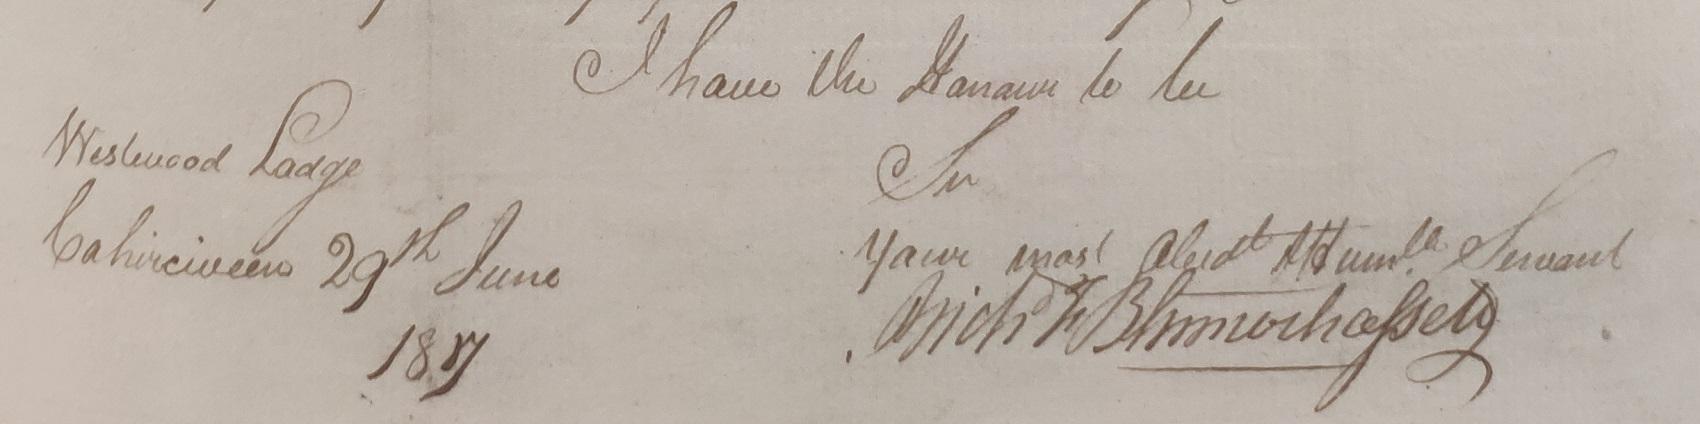 I have the Honour to be
Westwood Lodge
Sir
Cahirciveen 29th June
Your most Obedt Humble Servant
Richd F Blennerhassett